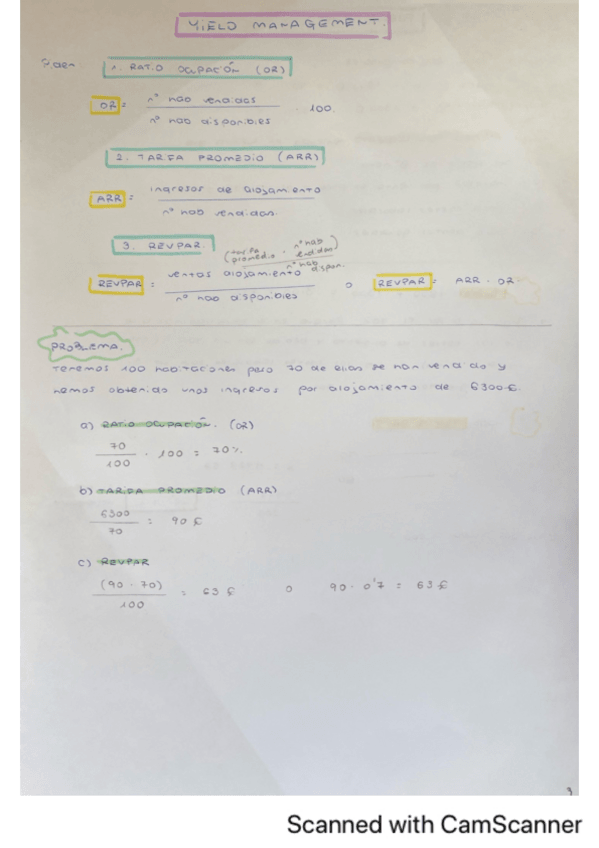 YIELD MANAGEMENT.
1. RATIO OCUPACIÓN (OR)
OR = nº hab vendidas / nº hab disponibles · 100.
2. TARIFA PROMEDIO (ARR)
ARR = ingresos de alojamiento / nº hab vendidas.
3. REVPAR.
(tarifa promedio · nº hab vendidas) / nº hab dispon.
REVPAR = ventas alojamiento / nº hab disponibles o REVPAR = ARR · OR
PROBLEMA.
Tenemos 100 habitaciones pero 70 de ellas se han vendido y
hemos obtenido unos ingresos por alojamiento de 6300€.
a) RATIO OCUPACIÓN. (OR)
70 / 100 · 100 = 70%.
b) TARIFA PROMEDIO (ARR)
6300 / 70 = 90 €
c) REVPAR
(90 · 70) / 100 = 63 € o 90 · 0'7 = 63 €
3
Scanned with CamScanner